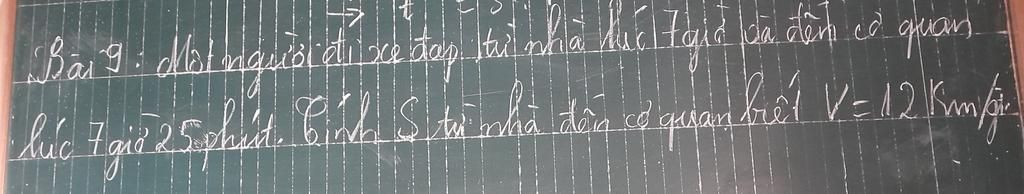 → t = S
Bài 9: Một người đi xe đạp từ nhà lúc 7 giờ và đến cơ quan
lúc 7 giờ 25 phút. Tính S từ nhà đến cơ quan biết V = 12 Km/g.